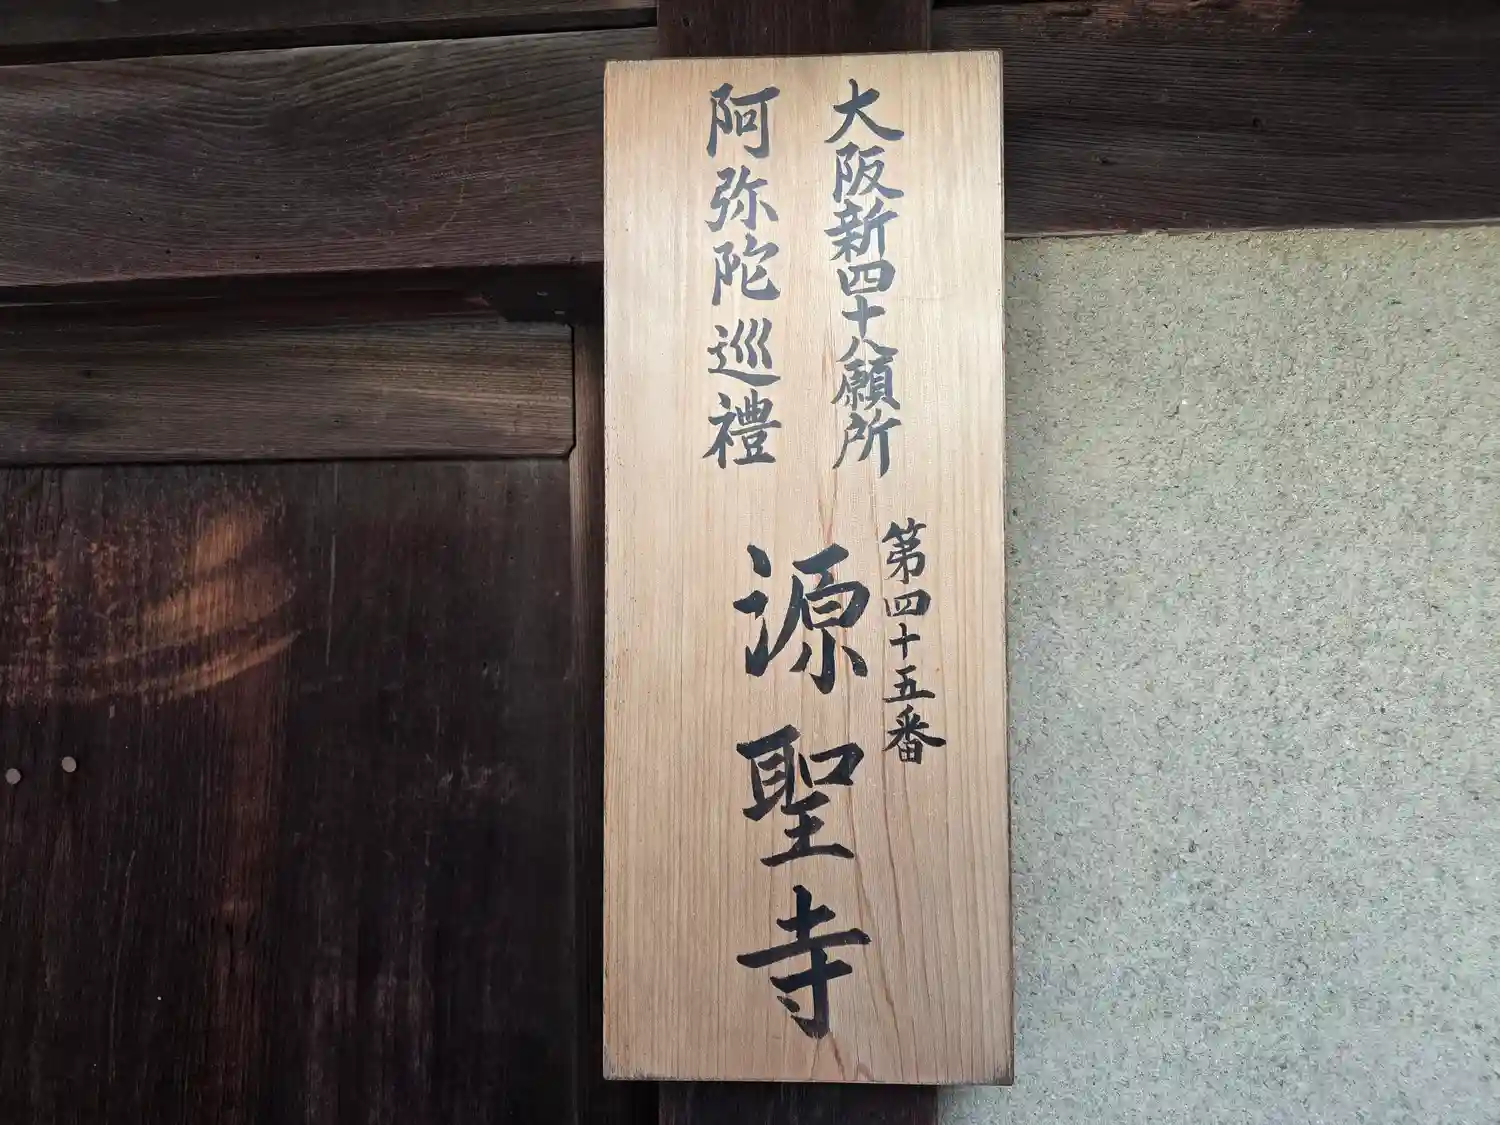 大阪新四十八願所
阿弥陀巡禮
第四十五番
源聖寺